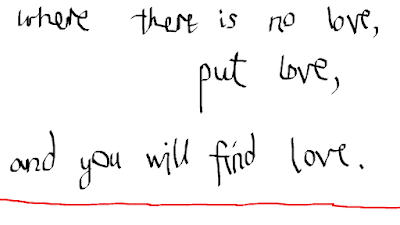 where there is no love,
put love,
and you will find love.